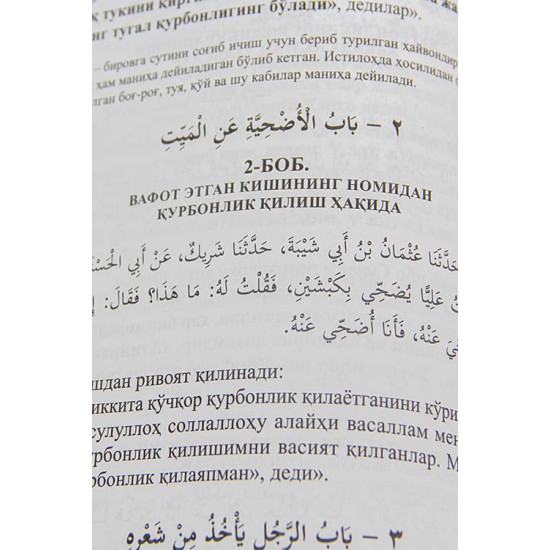 қ тукини қирт
нг тугал қурбонлигинг бўлади», дедилар».
– бировга сутини соғиб ичиш учун бериб турилган ҳайвондир
ҳам маниҳа дейиладиган бўлиб кетган. Истилоҳда ҳосилидан
лган боғ-роғ, туя, қўй ва шу кабилар маниҳа дейилади.
٢ – بَابُ الْأُضْحِيَّةِ عَنِ الْمَيِّتِ
2-БОБ.
ВАФОТ ЭТГАН КИШИНИНГ НОМИДАН
ҚУРБОНЛИК ҚИЛИШ ҲАҚИДА
حَدَّثَنَا عُثْمَانُ بْنُ أَبِي شَيْبَةَ، حَدَّثَنَا شَرِيكٌ، عَنْ أَبِي الْحَسْنَ
عَلِيًّا يُضَحِّي بِكَبْشَيْنِ، فَقُلْتُ لَهُ: مَا هَذَا؟ فَقَالَ: إِ
عَنْهُ، فَأَنَا أُضَحِّي عَنْهُ.
шдан ривоят қилинади:
иккита қўчқор қурбонлик қилаётганини кўри
сулуллоҳ соллаллоҳу алайҳи васаллам мен
рбонлик қилишимни васият қилганлар. М
рбонлик қилаяпман», деди».
٣ – بَابُ الرَّجُلِ يَأْخُذُ مِنْ شَعْرِهِ